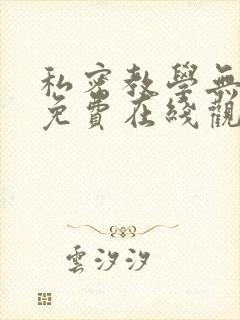 私密教學無
免費在綫觀
雲汐汐